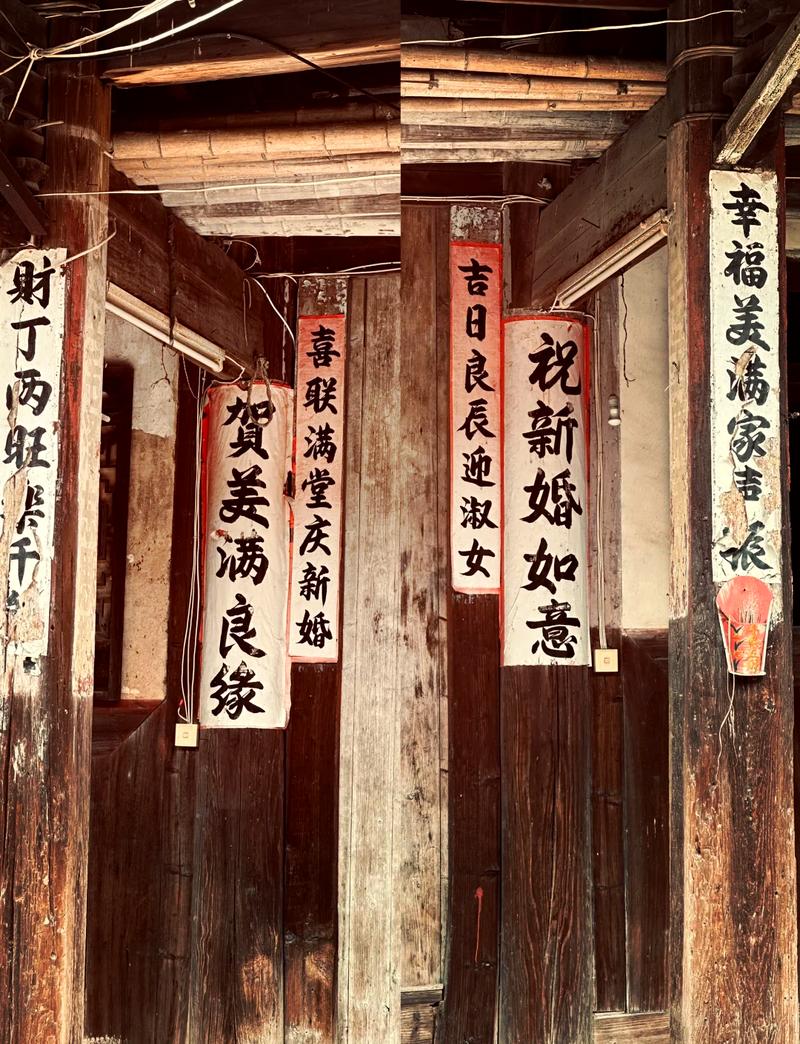 財丁两旺千
賀美满良缘
喜联满堂庆新婚
吉日良辰迎淑女
祝新婚如意
幸福美满家吉